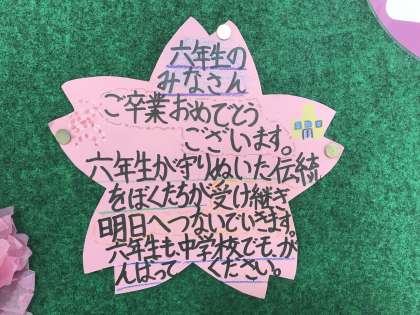 六年生の
みなさん
ご卒業おめでとう
ございます。
六年生が守りぬいた伝統
をぼくたちが受け継ぎ
明日へつないでいきます。
六年生も、中学校でも、が
んばって ください。